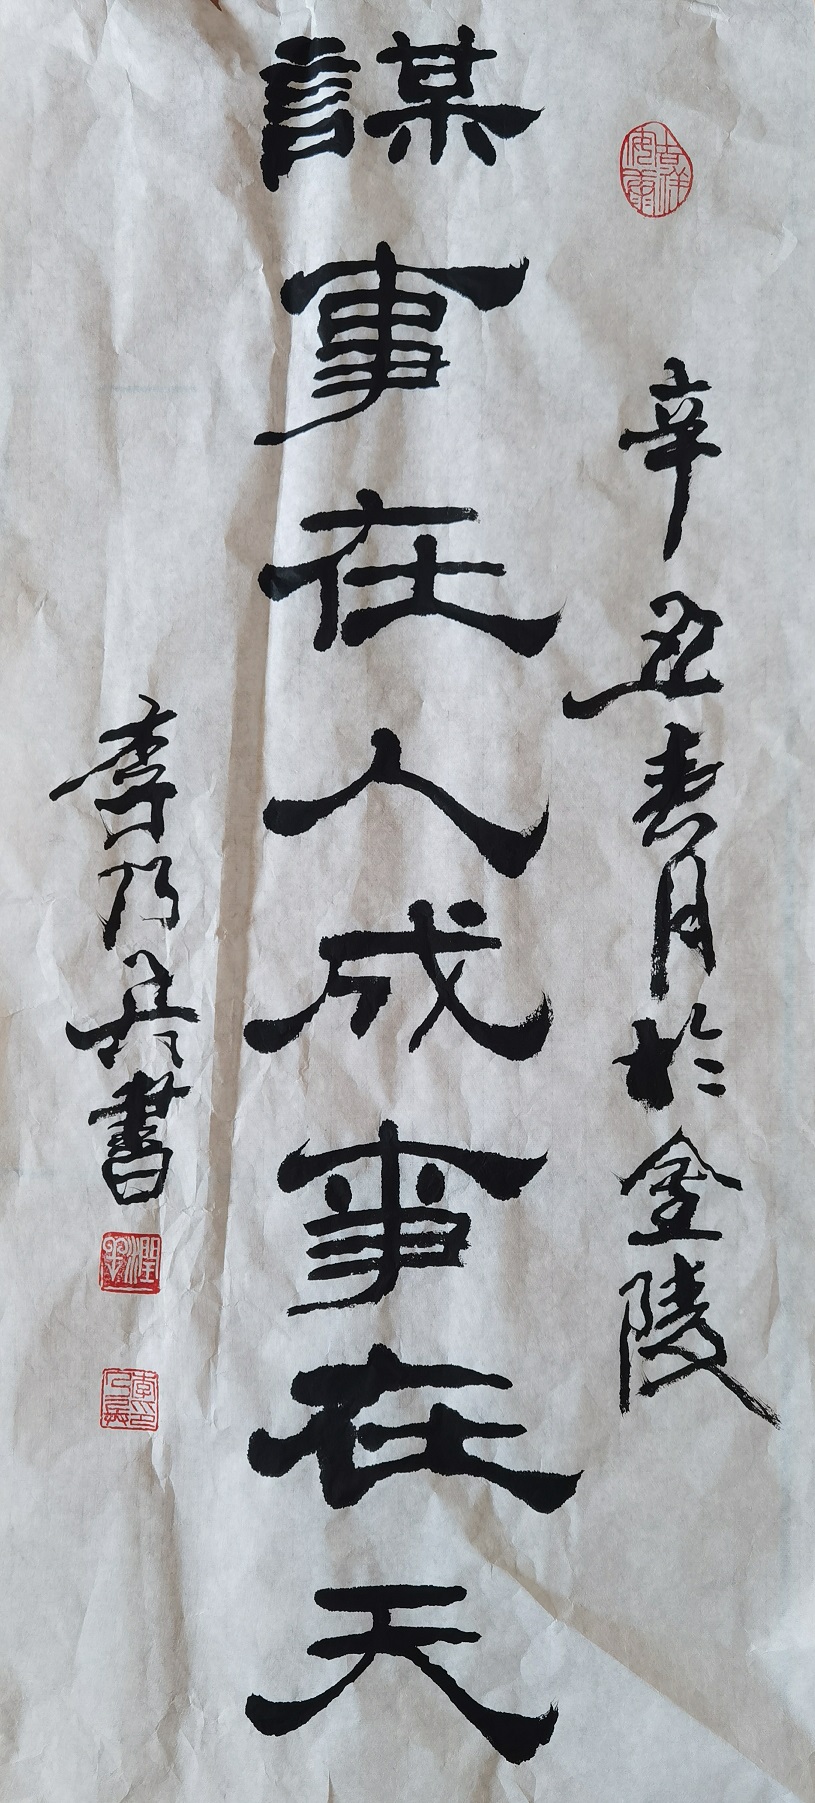 辛丑春月於金陵
謀事在人成事在天
李乃兵書